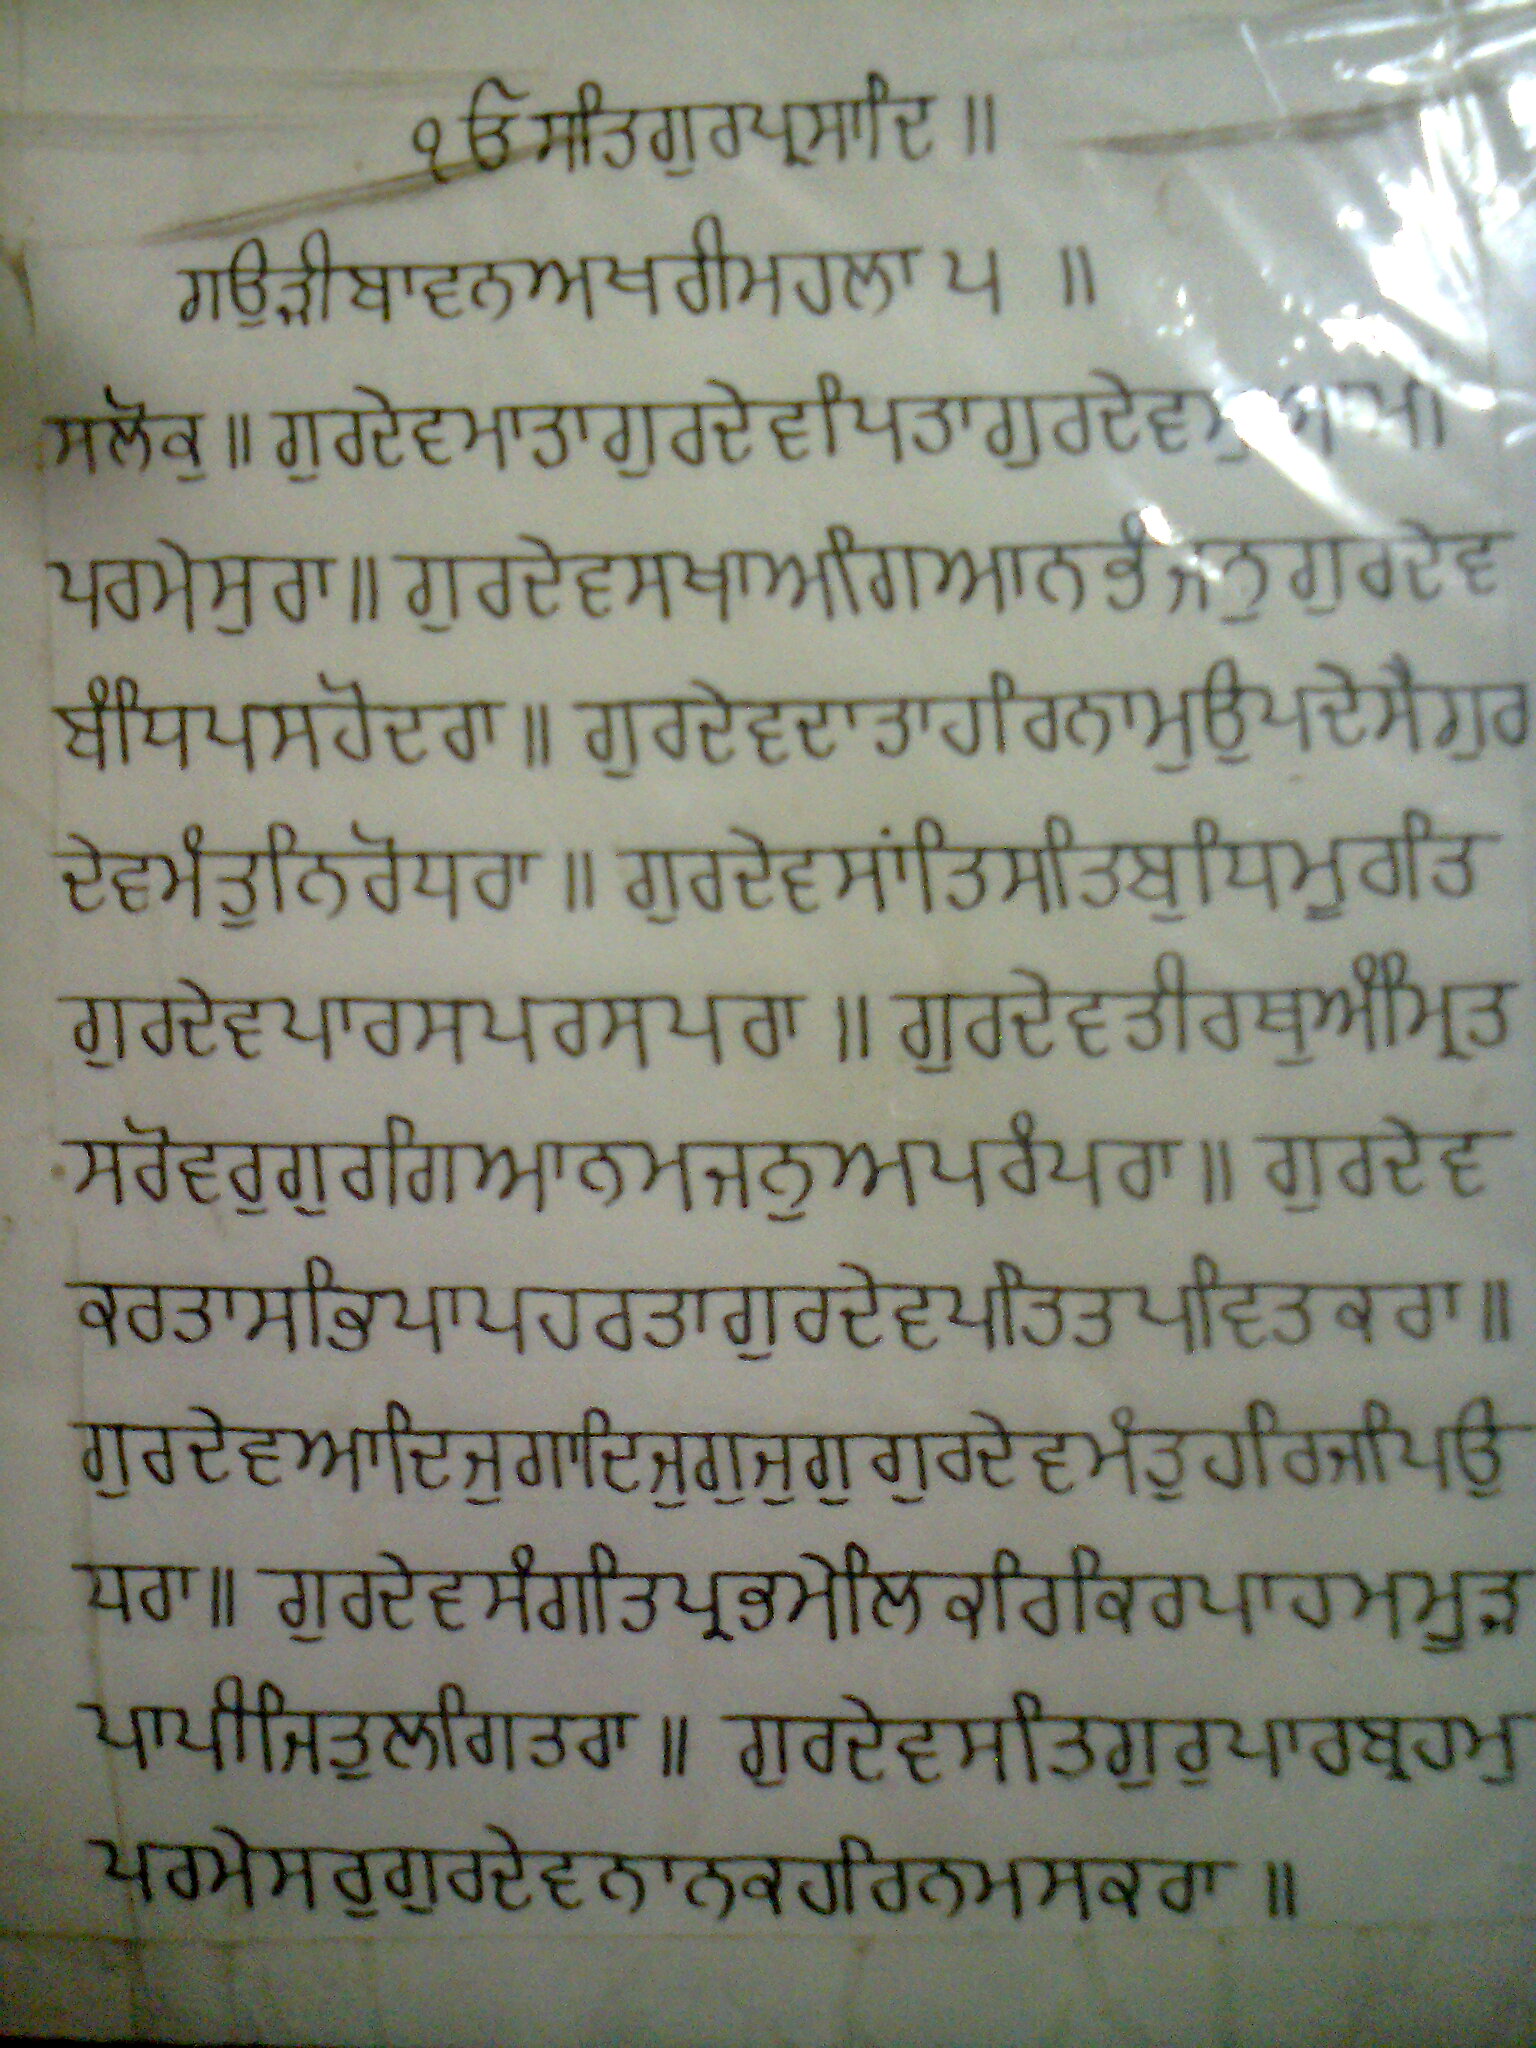 ੴ ਸਤਿਗੁਰਪ੍ਰਸਾਦਿ ॥
ਗਉੜੀਬਾਵਨਅਖਰੀਮਹਲਾ ੫ ॥
ਸਲੋਕੁ ॥ ਗੁਰਦੇਵਮਾਤਾਗੁਰਦੇਵਪਿਤਾਗੁਰਦੇਵ
ਪਰਮੇਸੁਰਾ ॥ ਗੁਰਦੇਵਸਖਾਅਗਿਆਨਭੰਜਨੁਗੁਰਦੇਵ
ਬੰਧਿਪਸਹੋਦਰਾ ॥ ਗੁਰਦੇਵਦਾਤਾਹਰਿਨਾਮੁਉਪਦੇਸੈਗੁਰ
ਦੇਵਮੰਤੁਨਿਰੋਧਰਾ ॥ ਗੁਰਦੇਵਸਾਂਤਿਸਤਿਬੁਧਿਮੂਰਤਿ
ਗੁਰਦੇਵਪਾਰਸਪਰਸਪਰਾ ॥ ਗੁਰਦੇਵਤੀਰਥੁਅੰਮ੍ਰਿਤ
ਸਰੋਵਰੁਗੁਰਗਿਆਨਮਜਨੁਅਪਰੰਪਰਾ ॥ ਗੁਰਦੇਵ
ਕਰਤਾਸਭਿਪਾਪਹਰਤਾਗੁਰਦੇਵਪਤਿਤਪਵਿਤਕਰਾ ॥
ਗੁਰਦੇਵਆਦਿਜੁਗਾਦਿਜੁਗੁਜੁਗੁਗੁਰਦੇਵਮੰਤੁਹਰਿਜਪਿਉ
ਧਰਾ ॥ ਗੁਰਦੇਵਸੰਗਤਿਪ੍ਰਭਮੇਲਿਕਰਿਕਿਰਪਾਹਮਮੂੜ
ਪਾਪੀਜਿਤੁਲਗਿਤਰਾ ॥ ਗੁਰਦੇਵਸਤਿਗੁਰੁਪਾਰਬ੍ਰਹਮੁ
ਪਰਮੇਸਰੁਗੁਰਦੇਵਨਾਨਕਹਰਿਨਮਸਕਰਾ ॥